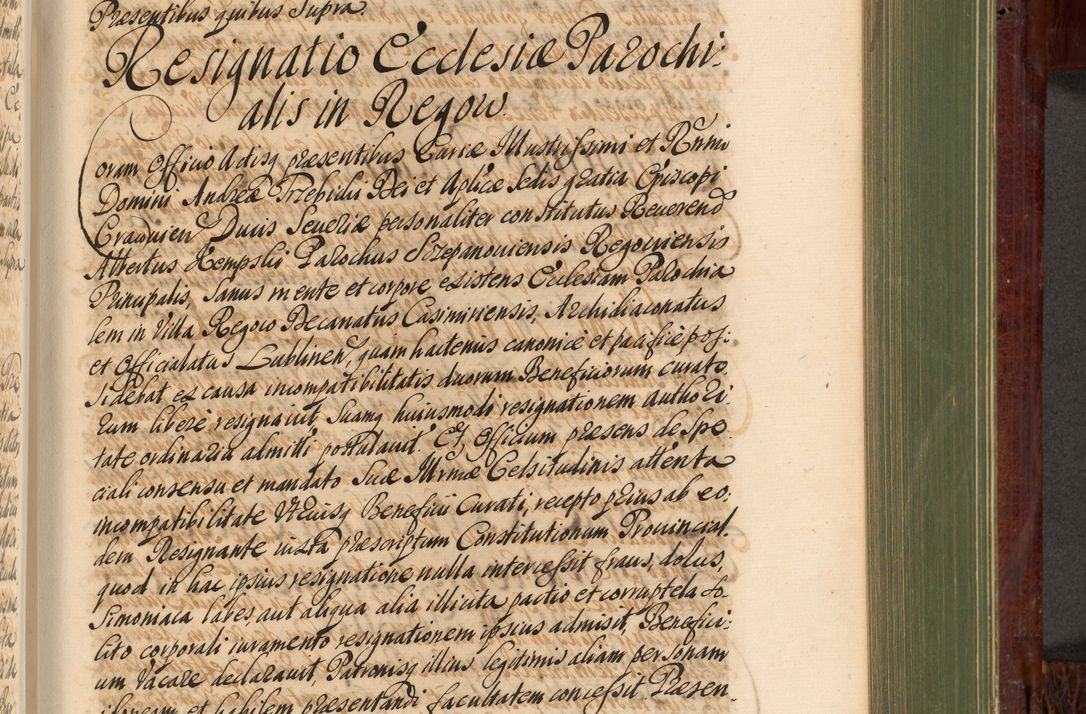 Præsentibus quibus supra.
Resignatio Ecclesiæ Parochi:
alis in Regow.
Coram Officio Actisq præsentibus Curiæ Illustrissimi et Rnmi
Domini Andreæ Trzebicki Dei et Aplicæ Sedis gratia Episcopi
Cracovien Ducis Severiæ personaliter constitutus Reverend
Albertus Kempski Parochus Strzepanoviensis Regoviensis
Principalis, sanus mente et corpore existens Ecclesiam Parochia
lem in Villa Regow Decanatus Casimiriensis, Archidiaconatus
et Officialatus Lublinen, quam hactenus canonicè et pacificè pos:
sidebat ex causa incompatibilitatis duorum Beneficiorum curato
rum liberè resignavit, suamq huiusmodi resignationem autho ri
tate ordinaria admitti postulavit. Et Officium præsens de Spe
ciali consensu et mandato Suæ Illrmæ Celsitudinis attenta
incompatibilitate utriusq Beneficii Curati, recepto prius ab eo:
dem Resignante iuxta præscriptum Constitutionum Provincial.
quod in hac ipsius resignatione nulla intercessit fraus, dolus,
Simoniaca labes, aut aliqua alia illicita pactio et corruptela so-
lito corporali iuramento resignationem ipsius admisit, Benefici:
um Vacare declaravit, Patronisq illius legitimis aliam personam
idoneam et habilem præsentandi facultatem concessit. Præsen-